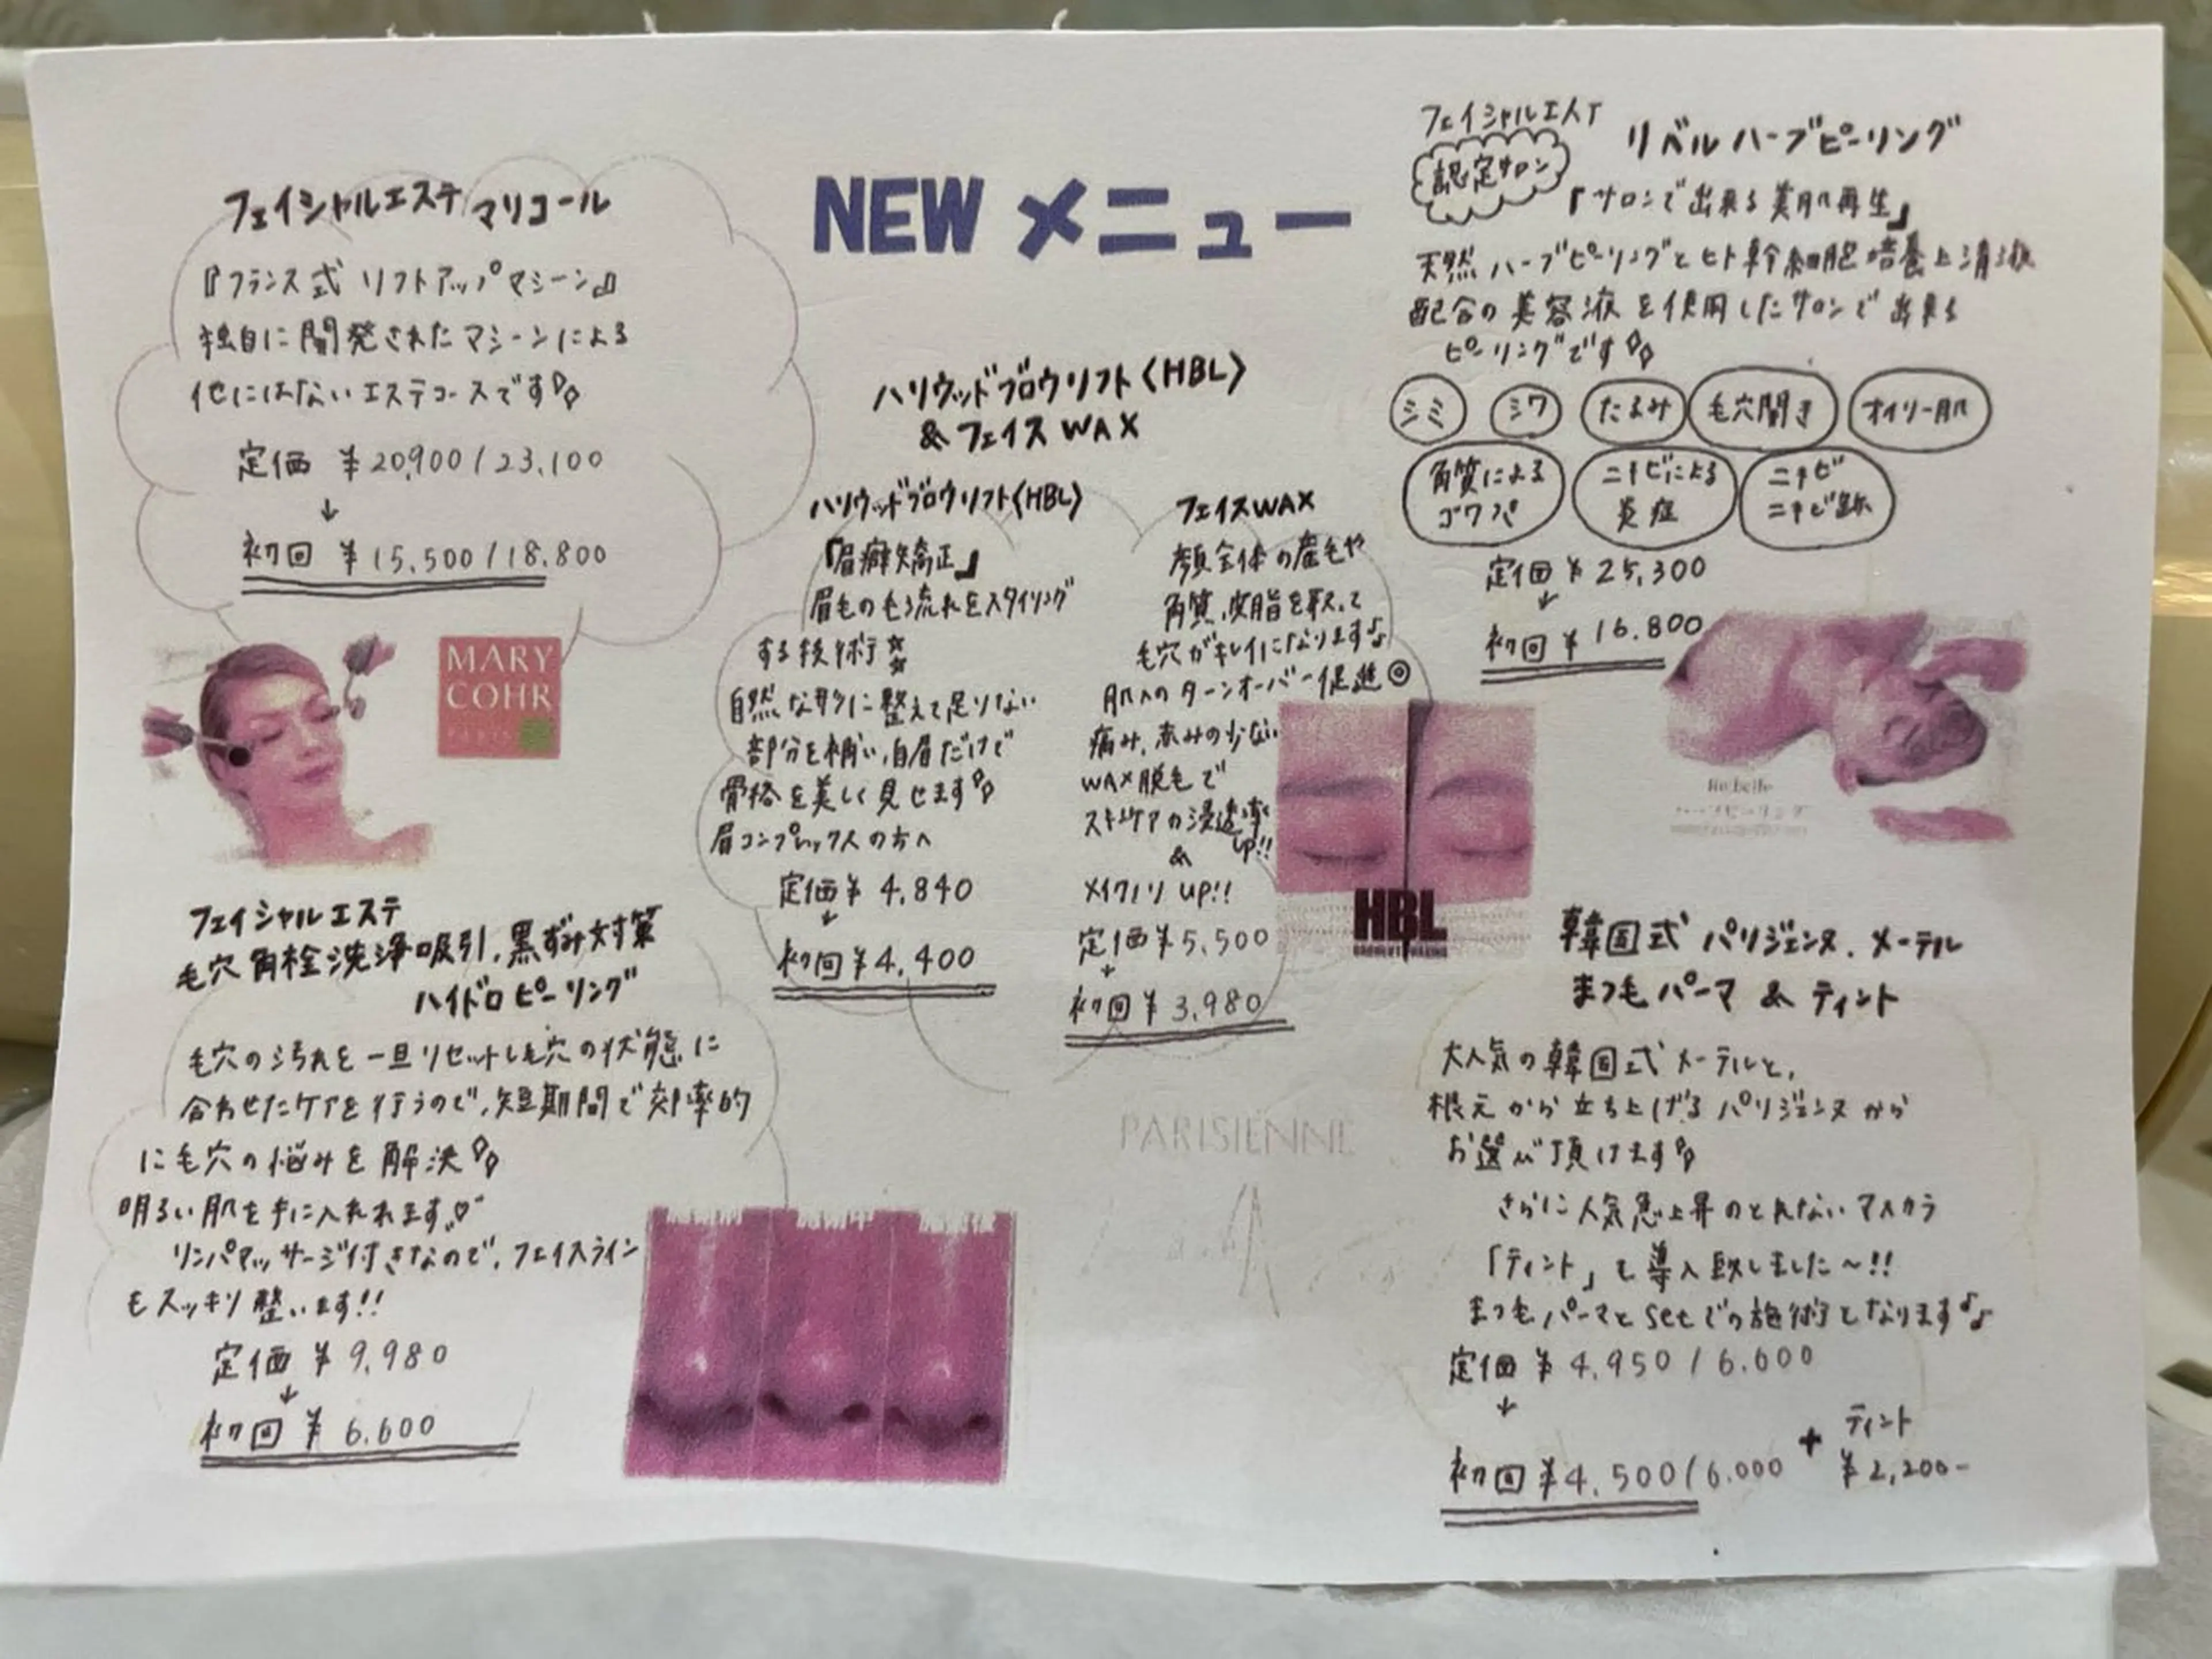 NEW メニュー
フェイシャルエステ マリコール
『フランス式 リフトアップマシーン』
独自に開発されたマシーンによる
他にはないエステコースです
定価 ¥20,900/23,100
↓
初回 ¥15,500/18,800
MARY
COHR
PARIS
フェイシャルエステ
毛穴角栓洗浄吸引,黒ずみ対策
ハイドロピーリング
毛穴の汚れを一旦リセットし毛穴の状態に
合わせたケアを行うので,短期間で効率的
に毛穴の悩みを解決
明るい肌を手に入れれます♡
リンパマッサージ付きなので,フェイスライン
もスッキリ整います!!
定価 ¥9,980
↓
初回 ¥6,600
ハリウッドブロウリフト〈HBL〉
&フェイスWAX
ハリウッドブロウリフト〈HBL〉
『眉癖矯正』
眉毛の毛流れをスタイリング
する技術☆
自然な形に整えて足りない
部分を補い,自眉だけで
骨格を美しく見せます
眉コンプレックスの方へ
定価¥4,840
↓
初回¥4,400
フェイスWAX
顔全体の産毛や
角質,皮脂を取って
毛穴がキレイになります♪
肌へのターンオーバー促進◎
痛み,赤みの少ない
WAX脱毛で
スキンケアの浸透率
UP!!
&
メイクノリUP!!
定価¥5,500
↓
初回¥3,980
HBL
PARISIENNE
フェイシャルエステ
認定サロン
リベルハーブピーリング
『サロンで出来る美肌再生』
天然ハーブピーリングとヒト幹細胞培養上清液
配合の美容液を使用したサロンで出来る
ピーリングです
シミ シワ たるみ 毛穴開き オイリー肌
角質による
ゴワつき
ニキビによる
炎症
ニキビ
ニキビ跡
定価¥25,300
↓
初回¥16,800
ハーブピーリング
韓国式パリジェンヌ.メーテル
まつ毛パーマ & ティント
大人気の韓国式メーテルと,
根元から立ち上げるパリジェンヌから
お選び頂けます
さらに人気急上昇のとれないマスカラ
「ティント」も導入致しました～!!
まつ毛パーマとsetでの施術となります♪
定価¥4,950/6,600
↓
初回¥4,500/6,000 + ティント
¥2,200-